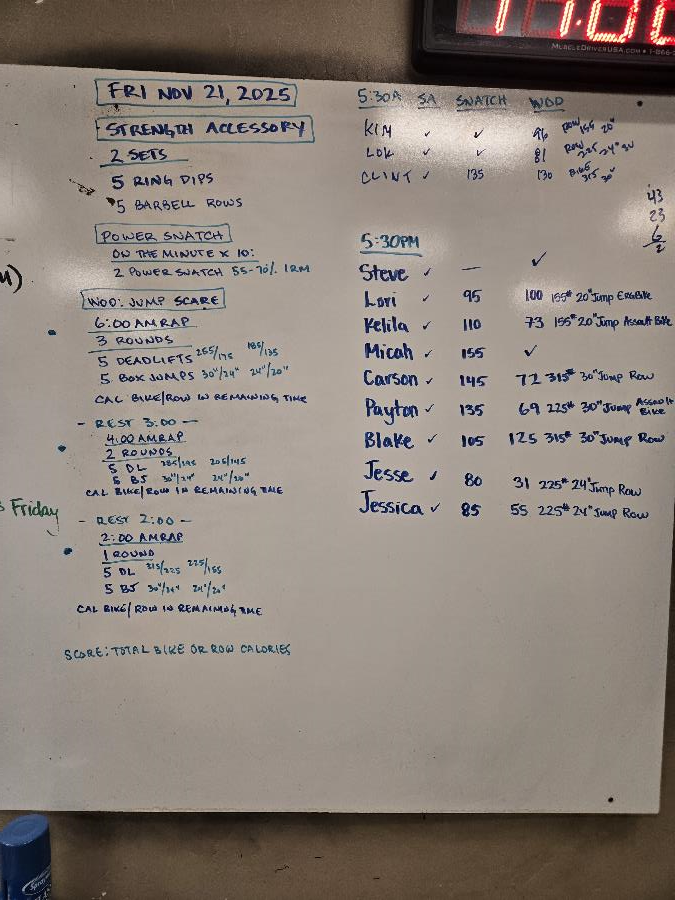 11:00
MUSCLEDRIVERUSA.COM • 1-866-
FRI NOV 21, 2025
STRENGTH ACCESSORY
2 SETS
5 RING DIPS
5 BARBELL ROWS
POWER SNATCH
ON THE MINUTE X 10:
2 POWER SNATCH 55-70% 1RM
WOD: JUMP SCARE
6:00 AMRAP
3 ROUNDS
5 DEADLIFTS 255/175 185/135
5 BOX JUMPS 30"/24" 24"/20"
CAL BIKE/ROW IN REMAINING TIME
- REST 3:00 -
4:00 AMRAP
2 ROUNDS
5 DL 285/195 205/145
5 BJ 30"/24" 24"/20"
CAL BIKE/ROW IN REMAINING TIME
- REST 2:00 -
2:00 AMRAP
1 ROUND
5 DL 315/225 225/155
5 BJ 30"/24" 24"/20"
CAL BIKE/ROW IN REMAINING TIME
SCORE: TOTAL BIKE OR ROW CALORIES
Friday
5:30A SA SNATCH WOD
KIM ✓ ✓ 96 ROW 155 20"
LOK ✓ ✓ 81 ROW 225 24"
CLINT ✓ 135 130 BIKE 315 30"
43
23
6
2
5:30PM
Steve ✓ — ✓
Lori ✓ 95 100 155# 20" Jump Erg Bike
Kelila ✓ 110 73 155# 20" Jump Assault Bike
Micah ✓ 155 ✓
Carson ✓ 145 72 315# 30" Jump Row
Payton ✓ 135 69 225# 30" Jump Assault Bike
Blake ✓ 105 125 315# 30" Jump Row
Jesse ✓ 80 31 225# 24" Jump Row
Jessica ✓ 85 55 225# 24" Jump Row